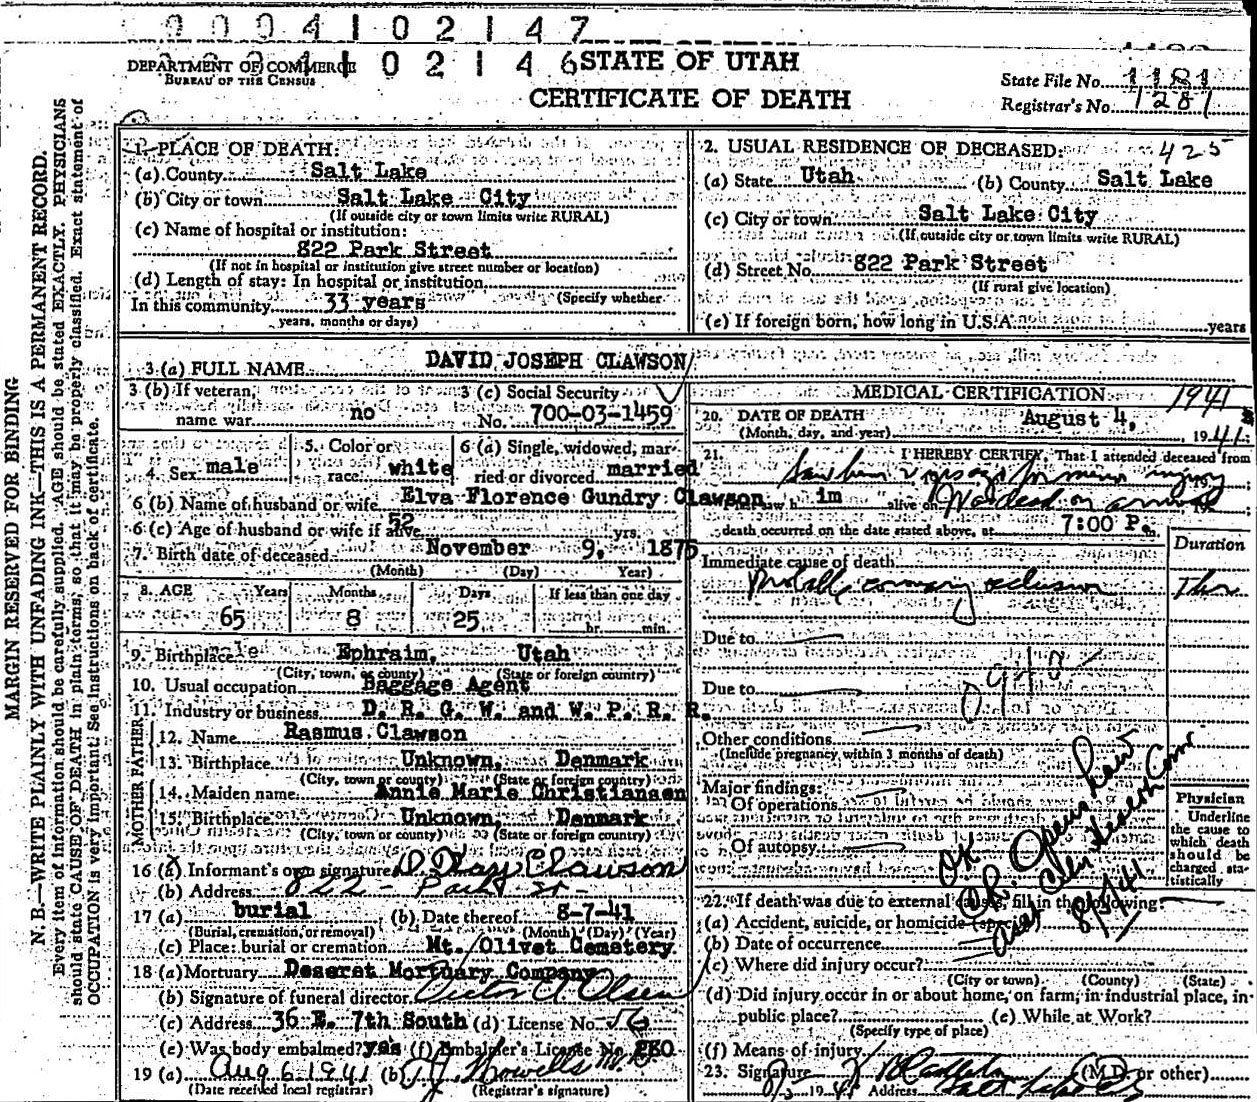 0004102147
0034102146
DEPARTMENT OF COMMERCE
BUREAU OF THE CENSUS
STATE OF UTAH
CERTIFICATE OF DEATH
State File No. 1181
Registrar's No. 1281
MARGIN RESERVED FOR BINDING
N. B.—WRITE PLAINLY WITH UNFADING INK—THIS IS A PERMANENT RECORD.
Every item of information should be carefully supplied. AGE should be stated EXACTLY. PHYSICIANS
should state CAUSE OF DEATH in plain terms, so that it may be properly classified. Exact statement of
OCCUPATION is very important. See instructions on back of certificate.
1. PLACE OF DEATH:
(a) County Salt Lake
(b) City or town Salt Lake City
(If outside city or town limits write RURAL)
(c) Name of hospital or institution:
822 Park Street
(If not in hospital or institution give street number or location)
(d) Length of stay: In hospital or institution
(Specify whether
In this community 33 years
years, months or days)
2. USUAL RESIDENCE OF DECEASED: 425
(a) State Utah (b) County Salt Lake
(c) City or town Salt Lake City
(If outside city or town limits write RURAL)
(d) Street No. 822 Park Street
(If rural give location)
(e) If foreign born, how long in U.S.A. years
3 (a) FULL NAME DAVID JOSEPH CLAWSON
3 (b) If veteran, name war no
3 (c) Social Security No. 700-03-1459
4. Sex male
5. Color or race white
6 (a) Single, widowed, married or divorced married
6 (b) Name of husband or wife Elva Florence Gundry Clawson
6 (c) Age of husband or wife if alive 52 yrs.
7. Birth date of deceased November 9, 1875
(Month) (Day) Year)
8. AGE Years Months Days If less than one day
65 8 25 hr. min.
9. Birthplace Ephraim, Utah
(City, town, or county) (State or foreign country)
10. Usual occupation Baggage Agent
11. Industry or business D. R. G. W. and W. P. R. R.
FATHER
12. Name Rasmus Clawson
13. Birthplace Unknown, Denmark
(City, town or county) (State or foreign country)
MOTHER
14. Maiden name Annie Marie Christiansen
15. Birthplace Unknown, Denmark
(City, town or county) (State or foreign country)
16 (a) Informant's own signature D. Clawson
(b) Address 822 - Park St -
17 (a) burial (b) Date thereof 8-7-41
(Burial, cremation, or removal) (Month) (Day) (Year)
(c) Place: burial or cremation Mt. Olivet Cemetery
18 (a) Mortuary Deseret Mortuary Company
(b) Signature of funeral director Victor A Olsen
(c) Address 36 E. 7th South (d) License No. 56
(e) Was body embalmed? yes (f) Embalmer's License No.
19 (a) Aug 6 1941 (b)
(Date received local registrar) (Registrar's signature)
MEDICAL CERTIFICATION 1941
20. DATE OF DEATH August 4, 1941
(Month, day, and year)
21. I HEREBY CERTIFY, That I attended deceased from
for minor injury
im alive on Was dead on arrival
death occurred on the date stated above, at 7:00 P. m.
Duration
Immediate cause of death
Probably coronary occlusion
Due to
Due to
Other conditions
(Include pregnancy within 3 months of death)
Major findings:
Of operations
Of autopsy
Physician
Underline
the cause to
which death
should be
charged sta-
tistically
OK
8/7/41
22. If death was due to external causes, fill in the following:
(a) Accident, suicide, or homicide
(b) Date of occurrence
(c) Where did injury occur?
(City or town) (County) (State)
(d) Did injury occur in or about home, on farm, in industrial place, in
public place? (e) While at Work?
(Specify type of place)
(f) Means of injury
23. Signature (M.D. or other)
1941 Address Salt Lake City